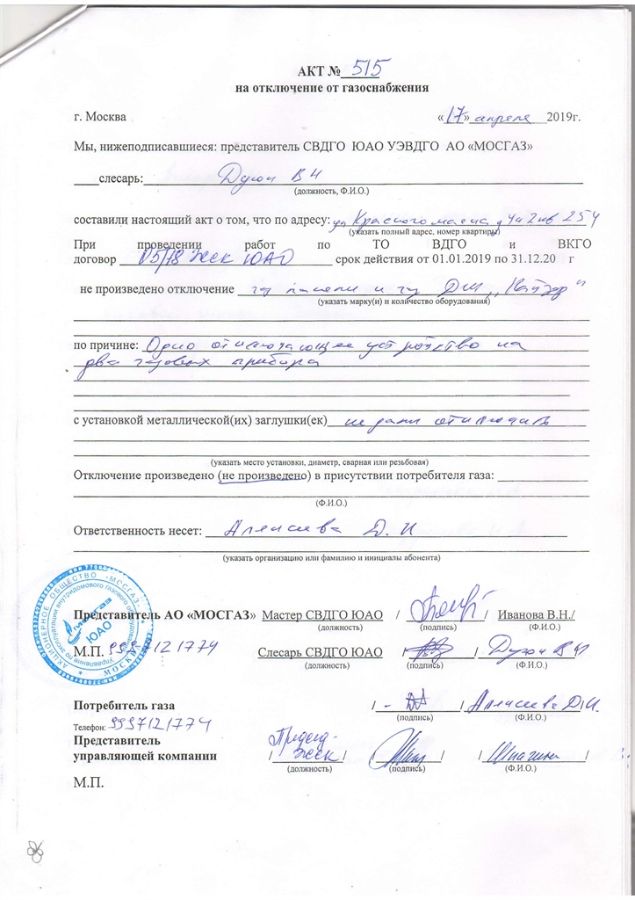 АКТ № 515
на отключение от газоснабжения
г. Москва «17» апреля 2019г.
Мы, нижеподписавшиеся: представитель СВДГО ЮАО УЭВДГО АО «МОСГАЗ»
слесарь: В Н
(должность, Ф.И.О.)
составили настоящий акт о том, что по адресу: ул Красного маяка д 4к2 кв 254
(указать полный адрес, номер квартиры)
При проведении работ по ТО ВДГО и ВКГО
договор 05/18 ЖСК ЮАО срок действия от 01.01.2019 по 31.12.20 г
не произведено отключение и
(указать марку(и) и количество оборудования)
по причине: Одно отключающее устройство на
два газовых прибора
с установкой металлической(их) заглушки(ек) не дали отключить
(указать место установки, диаметр, сварная или резьбовая)
Отключение произведено (не произведено) в присутствии потребителя газа:
(Ф.И.О.)
Ответственность несет: Д. И
(указать организацию или фамилию и инициалы абонента)
АКЦИОНЕРНОЕ ОБЩЕСТВО «МОСГАЗ»
МОСГАЗ
ЮАО
МОСКВА
Представитель АО «МОСГАЗ» Мастер СВДГО ЮАО / / Иванова В.Н./
(должность) (подпись) (Ф.И.О.)
М.П. Слесарь СВДГО ЮАО / / В Н /
(должность) (подпись) (Ф.И.О.)
Потребитель газа / / Д.И.
(подпись) (Ф.И.О.)
Телефон: 9997121774
Представитель Председ.
управляющей компании / ЖСК / / / / Шпагина /
(должность) (подпись) (Ф.И.О.)
М.П.